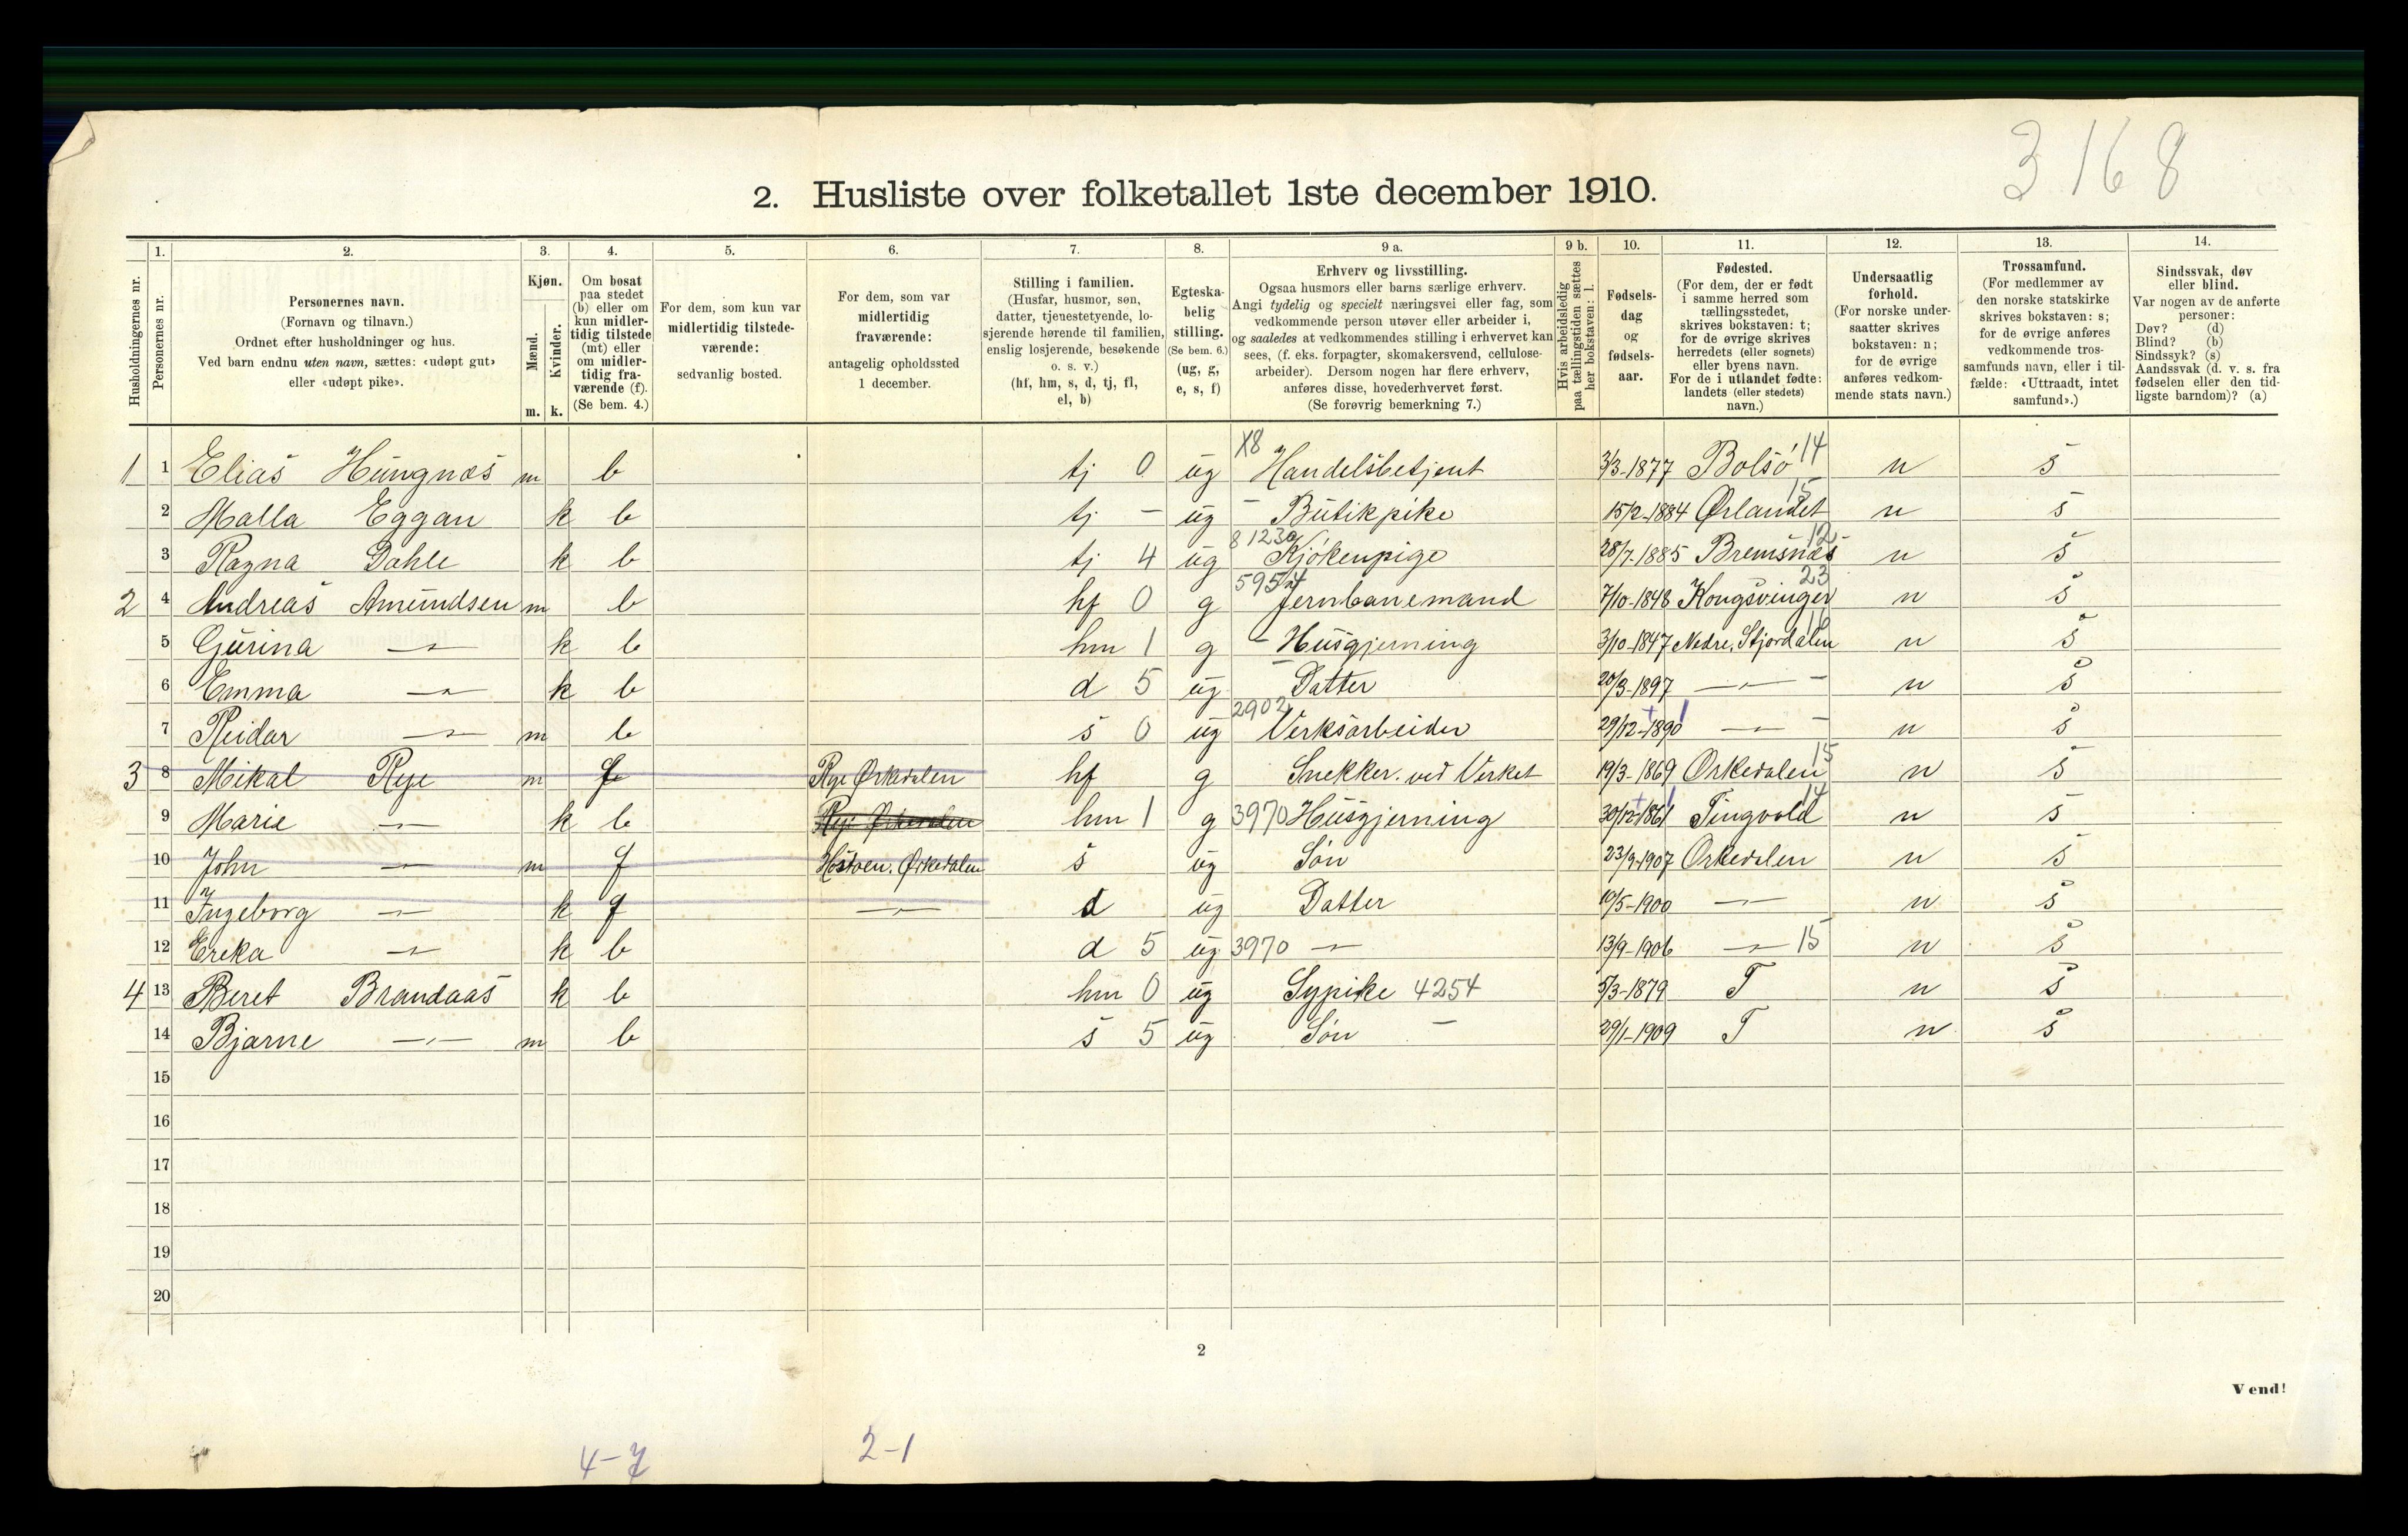 3 16 8
2. Husliste over folketallet 1ste december 1910.
1. 2. 3. 4. 5. 6. 7. 8. 9 a. 9 b. 10. 11. 12. 13. 14.
Husholdningernes nr.
Personernes nr.
Personernes navn.
(Fornavn og tilnavn.)
Ordnet efter husholdninger og hus.
Ved barn endnu uten navn, sættes: «udøpt gut»
eller «udøpt pike».
Kjøn.
Mænd.
Kvinder.
m. k.
Om bosat
paa stedet
(b) eller om
kun midler-
tidig tilstede
(mt) eller
om midler-
tidig fra-
værende (f).
(Se bem. 4.)
For dem, som kun var
midlertidig tilstede-
værende:
sedvanlig bosted.
For dem, som var
midlertidig
fraværende:
antagelig opholdssted
1 december.
Stilling i familien.
(Husfar, husmor, søn,
datter, tjenestetyende, lo-
sjerende hørende til familien,
enslig losjerende, besøkende
o. s. v.)
(hf, hm, s, d, tj, fl,
el, b)
Egteska-
belig
stilling.
(Se bem. 6.)
(ug, g,
e, s, f)
Erhverv og livsstilling.
Ogsaa husmors eller barns særlige erhverv.
Angi tydelig og specielt næringsvei eller fag, som
vedkommende person utøver eller arbeider i,
og saaledes at vedkommendes stilling i erhvervet kan
sees, (f. eks. forpagter, skomakersvend, cellulose-
arbeider). Dersom nogen har flere erhverv,
anføres disse, hovederhvervet først.
(Se forøvrig bemerkning 7.)
Hvis arbeidsledig
paa tællingstiden sættes
her bokstaven: l.
Fødsels-
dag
og
fødsels-
aar.
Fødested.
(For dem, der er født
i samme herred som
tællingsstedet,
skrives bokstaven: t;
for de øvrige skrives
herredets (eller sognets)
eller byens navn.
For de i utlandet fødte:
landets (eller stedets)
navn.)
Undersaatlig
forhold.
(For norske under-
saatter skrives
bokstaven: n;
for de øvrige
anføres vedkom-
mende stats navn.)
Trossamfund.
(For medlemmer av
den norske statskirke
skrives bokstaven: s;
for de øvrige anføres
vedkommende tros-
samfunds navn, eller i til-
fælde: «Uttraadt, intet
samfund».)
Sindssvak, døv
eller blind.
Var nogen av de anførte
personer:
Døv? (d)
Blind? (b)
Sindssyk? (s)
Aandssvak (d. v. s. fra
fødselen eller den tid-
ligste barndom)? (a)
1 1 Elias Hungnæs m b tj 0 ug X8 Handelsbetjent 3/3-1877 Bolsø 14 n s
2 Malla Eggan k b tj - ug - Butikpike 15/2-1884 Ørlandet 15 n s
3 Ragna Dahle k b tj 4 ug 8123a Kjøkenpige 28/7-1885 Bremsnæs 12 n s
2 4 Andreas Amundsen m b hf 0 g 5954 Jernbanemand 7/10-1848 Kongsvinger 23 n s
5 Gurina -"- k b hm 1 g - Husgjerning 3/10-1847 Nedre. Stjørdalen n s
6 Emma -"- k b d 5 ug - Datter 20/3-1897 -"- - n s
7 Reidar -"- m b s 0 ug 2902 Verksarbeider 29/12-1890 -"- - n s
3 8 Mikal Rye m f Rye Ørkedalen hf g Snekker. ved Verket 19/3-1869 Orkedalen 15 n s
9 Marie -"- k b Rye Ørkedalen hm 1 g 3970 Husgjerning 30/12-1861 Tingvold 14 n s
10 John -"- m f . Ørkedalen s ug Søn 23/9-1907 Orkedalen n s
11 Ingeborg -"- k f -"- d ug Datter 10/5-1900 -"- n s
12 Ereka -"- k b d 5 ug 3970 -"- 13/9-1906 -"- 15 n s
4 13 Beret Brandaas k b hm 0 ug Sypike 4254 5/3-1879 T n s
14 Bjarne -"- m b s 5 ug Søn - 29/1-1909 T n s
15
16
17
18
19
20
2
Vend!
4-7 2-1